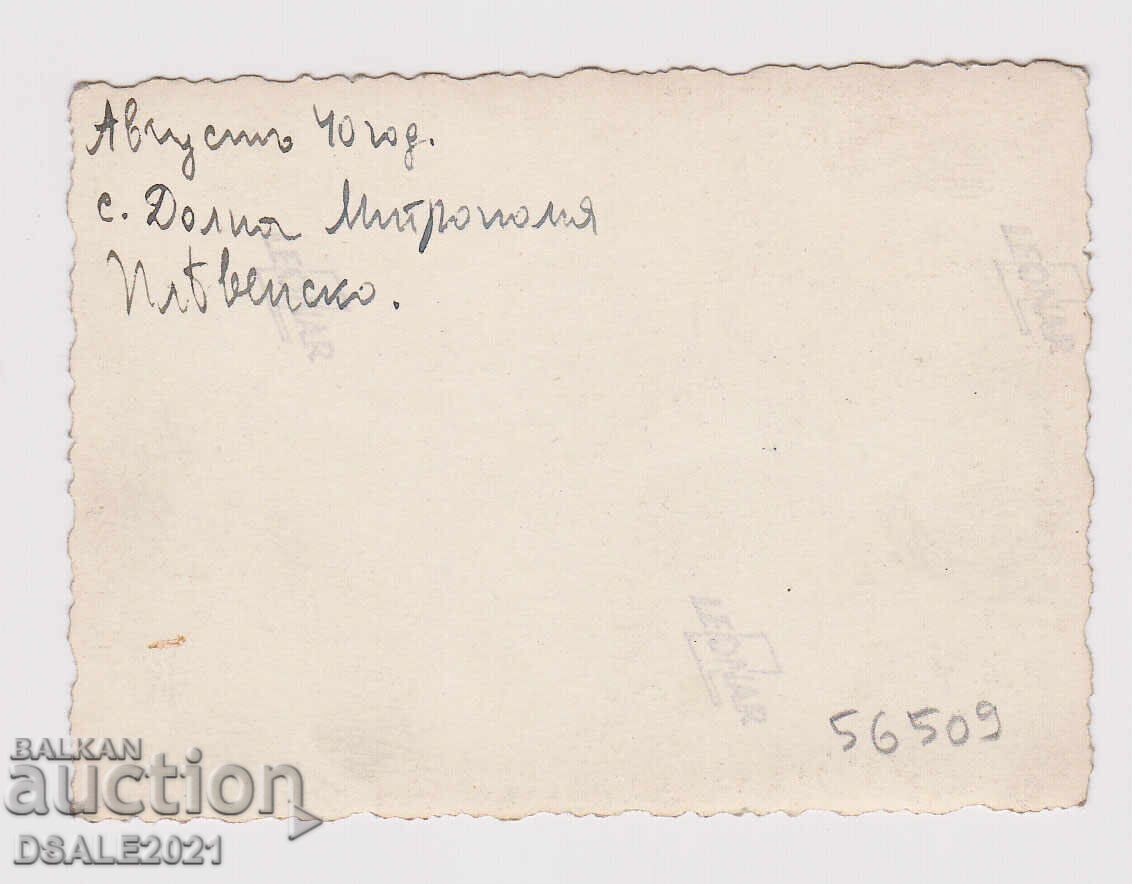 Августъ 40 год.
с. Долна Митрополия
Плѣвенско.
LEONAR
LEONAR
LEONAR
56509
BALKAN
auction
DSALE2021